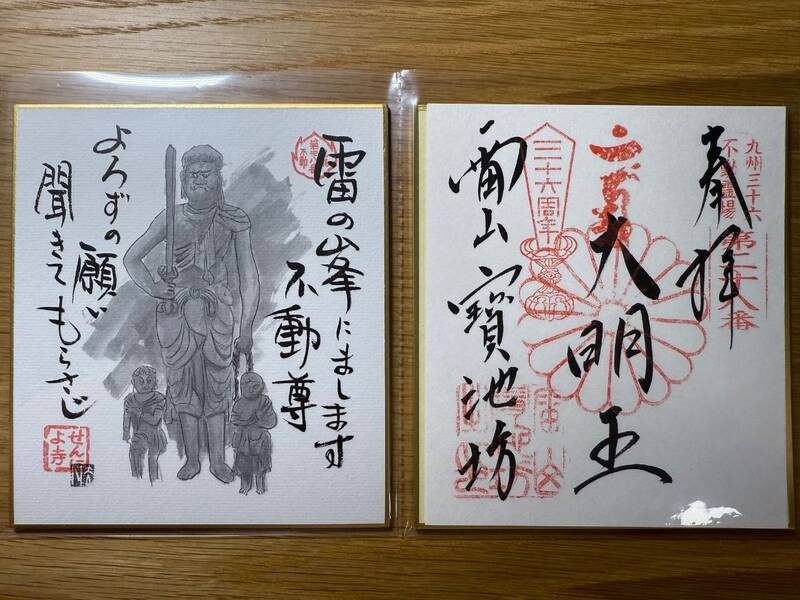 雷の峰にまします
不動尊
よろずの願い
聞きてもらさじ
せんによ寺
九州三十六
不動霊場
第二十八番
奉拝
大明王
三十六周年
雷山寶池坊